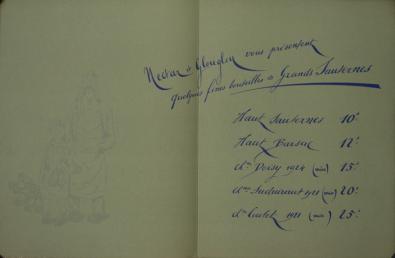 Nectar & Glouglou vous présentent
quelques fines bouteilles de Grands Sauternes
Haut Sauternes 10f
Haut Barsac 12f
Ch. Doisy 1924 (mis) 15f
Ch. Suduiraut 1921 (mis) 20f
Ch. 1921 (mis) 25f